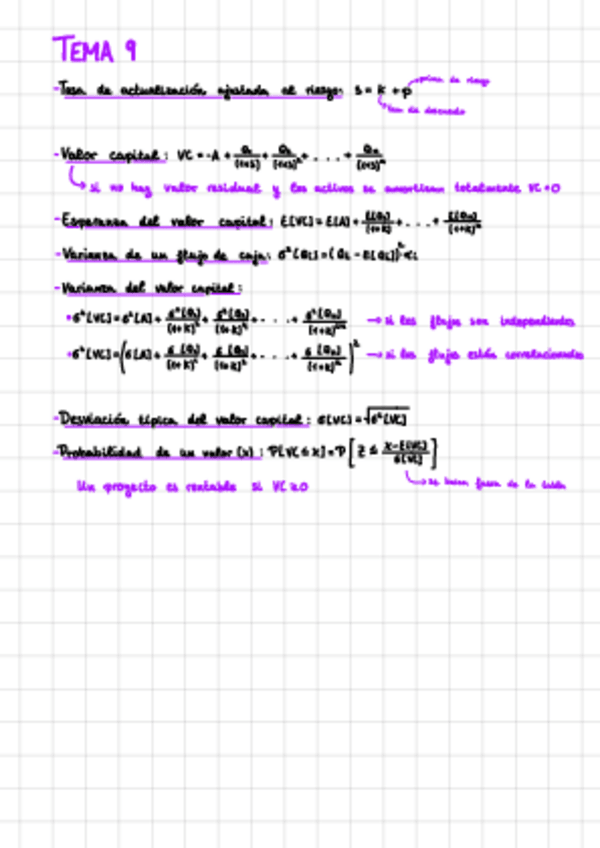 TEMA 9
- Tasa de actualización ajustada al riesgo: s = K + p
prima de riesgo
tasa de descuento
- Valor capital: VC = -A + Q₁/(1+s) + Q₂/(1+s)² + . . . + Qₙ/(1+s)ⁿ
si no hay valor residual y los activos se amortizan totalmente VC=0
- Esperanza del valor capital: E[VC] = E[A] + E[Q₁]/(1+K) + . . . + E[Qₙ]/(1+K)ⁿ
- Varianza de un flujo de caja:
- Varianza del valor capital:
• σ²[VC] = σ²[A] + σ²[Q₁]/(1+K)² + σ²[Q₂]/(1+K)⁴ + . . . + σ²[Qₙ]/(1+K)²ⁿ → si los flujos son independientes
• σ²[VC] = → si los flujos están correlacionados
- Desviación típica del valor capital: σ[VC] = √σ²[VC]
- Probabilidad de un valor (x): P[VC ≤ x] = P[Z ≤ x-E[VC]/σ[VC]]
se busca fuera de la tabla
Un proyecto es rentable si VC ≥ 0